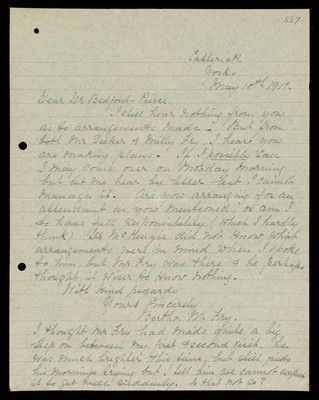 527
Catterick
Yorks
May 10th 1917.
Dear Dr Bedford-Pierce.
I still hear nothing from you
as to arrangements made. But from
both Mr & Milly Fry, I hear you
are making plans. If I possibly can
I may come over on Monday morning
but let me hear by letter lest I cannot
manage it. Are you arranging for an
attendant as you mentioned, or am I
to have full responsibility (which I hardly
think) Dr McKenzie did not know what
arrangements were in mind when I spoke
to him, but Mr Fry was there & he perhaps
thought it wiser to know nothing.
With kind regards
Yours Sincerely
Bertha M. Fry.
I thought Mr Fry had made quite a big
step on between my first & second visit. he
was much brighter this time, but still finds
his mornings trying but I tell him we cannot expect
it to get well suddenly. Is that not so?